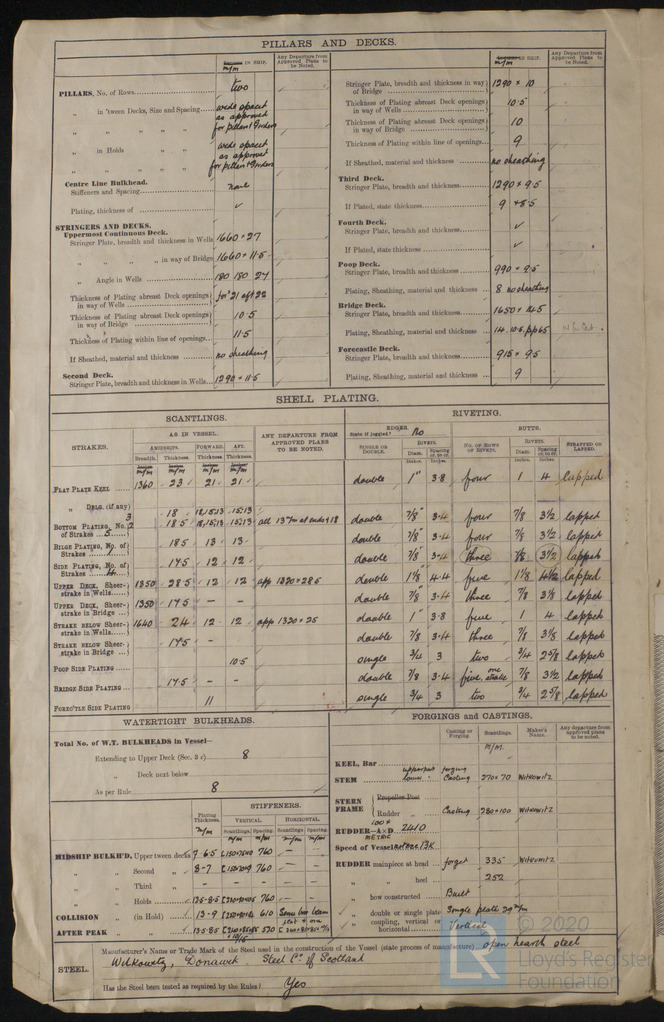 PILLARS AND DECKS.
m/m IN SHIP.
Any Departure from Approved Plans to be Noted.
PILLARS, No. of Rows two
„ in 'tween Decks, Size and Spacing wide spaced
as approved
for pillars & girders
„ in Holds wide spaced
as approved
for pillars & girders
Centre Line Bulkhead.
Stiffeners and Spacing none
Plating, thickness of ✓
STRINGERS AND DECKS.
Uppermost Continuous Deck.
Stringer Plate, breadth and thickness in Wells 1660 × 27
„ „ „ „ in way of Bridge 1660 × 11.5
„ Angle in Wells 180 180 27
Thickness of Plating abreast Deck openings in way of Wells for'd 21 aft 22
Thickness of Plating abreast Deck openings in way of Bridge 10.5
Thickness of Plating within line of openings 11.5
If Sheathed, material and thickness no sheathing
Second Deck.
Stringer Plate, breadth and thickness in Wells 1290 × 11.5
m/m IN SHIP.
Any Departure from Approved Plans to be Noted.
Stringer Plate, breadth and thickness in way of Bridge 1290 × 10
Thickness of Plating abreast Deck openings in way of Wells 10.5
Thickness of Plating abreast Deck openings in way of Bridge 10
Thickness of Plating within line of openings 9
If Sheathed, material and thickness no sheathing
Third Deck.
Stringer Plate, breadth and thickness 1290 × 9.5
If Plated, state thickness 9 & 8.5
Fourth Deck.
Stringer Plate, breadth and thickness ✓
If Plated, state thickness ✓
Poop Deck.
Stringer Plate, breadth and thickness 990 × 9.5
Plating, Sheathing, material and thickness 8 no sheathing
Bridge Deck.
Stringer Plate, breadth and thickness 1650 × 14.5
Plating, Sheathing, material and thickness 14. 10.5
Forecastle Deck.
Stringer Plate, breadth and thickness 915 × 9.5
Plating, Sheathing, material and thickness 9
SHELL PLATING.
SCANTLINGS.
RIVETING.
STRAKES.
AS IN VESSEL.
ANY DEPARTURE FROM APPROVED PLANS TO BE NOTED.
EDGES.
State if joggled? No
BUTTS.
AMIDSHIPS. FORWARD. AFT.
Breadth. Thickness. Thickness. Thickness.
SINGLE OR DOUBLE.
RIVETS.
Diam. Spacing
NO. OF ROWS OF RIVETS.
RIVETS.
Diam. Spacing
STRAPPED OR LAPPED.
FLAT PLATE KEEL 1360 23 21 21 double 1" 3.8 four 1 4 lapped
„ DBLG. (if any)
BOTTOM PLATING, No. of Strakes 18 18,15,13 15,13 double 7/8" 3.4 four 7/8 3½ lapped
18.5 18,15,13 15,13 all 13 m/m at ends & 18
BILGE PLATING, No. of Strakes 18.5 13 13 double 7/8" 3.4 four 7/8 3½ lapped
SIDE PLATING, No. of Strakes 17.5 12 12 double 7/8" 3.4 three 7/8 3½ lapped
UPPER DECK, Sheerstrake in Wells 1350 28.5 12 12 app 1320 × 28.5 double 1⅛ 4.4 five 1⅛ 4½ lapped
UPPER DECK, Sheerstrake in Bridge 1350 17.5 – – double 7/8 3.4 three 7/8 3½ lapped
STRAKE BELOW Sheerstrake in Wells 1640 24 12 12 app 1320 × 25 double 1" 3.8 five 1 4 lapped
STRAKE BELOW Sheerstrake in Bridge 17.5 double 7/8 3.4 three 7/8 3½ lapped
POOP SIDE PLATING 10.5 single 3/4 3 two 3/4 2⅝ lapped
BRIDGE SIDE PLATING 17.5 – – double 7/8 3.4 five, one strake 7/8 3½ lapped
FORE'C'TLE SIDE PLATING 11 single 3/4 3 two 3/4 2⅝ lapped
WATERTIGHT BULKHEADS.
Total No. of W.T. BULKHEADS in Vessel—
Extending to Upper Deck (Sec. 3 c) 8
„ Deck next below
As per Rule 8
STIFFENERS.
Plating Thickness. m/m
VERTICAL. HORIZONTAL.
Scantlings. Spacing. Scantlings. Spacing.
MIDSHIP BULKH'D, Upper tween decks 7 6.5 760 – –
„ „ Second „ 8-7 760 – –
„ „ Third „ – – – – –
„ „ Holds 760 – –
COLLISION „ (in Hold) 13-9 610
AFTER PEAK „ „ 13.5-8.5 520
FORGINGS and CASTINGS.
Casting or Forging.
Scantlings. M/M.
Maker's Name.
Any departure from approved plans to be noted.
KEEL, Bar
STEM upper part forging
lower „ Casting 270 × 70 Witkowitz
STERN FRAME Propeller Post
Rudder „ Casting 280 × 100 Witkowitz
RUDDER—A×D 2410
METRIC
Speed of Vessel 13K
RUDDER mainpiece at head forged 335 Witkowitz
„ „ heel 252
„ how constructed Built
„ double or single plate Single plate 29 m/m
„ coupling, vertical or horizontal Vertical
STEEL.
Manufacturer's Name or Trade Mark of the Steel used in the construction of the Vessel (state process of manufacture) open hearth steel
Witkowitz, Donawitz Steel Co. of Scotland
Has the Steel been tested as required by the Rules? Yes
© 2020
LR
Lloyd's Register
Foundation